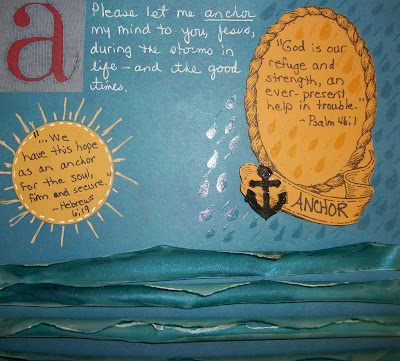 a
Please let me anchor
my mind to you, Jesus,
during the storms in
life - and the good
times.
"God is our
refuge and
strength, an
ever-present
help in trouble."
~ Psalm 46:1
"...We
have this hope
as an anchor
for the soul,
firm and secure."
~ Hebrews
6:19
ANCHOR